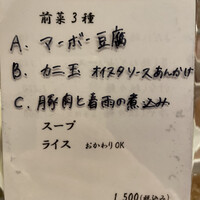 前菜3種
A. マーボー豆腐
B. カニ玉 オイスタソースあんかけ
C. 豚肉と春雨の煮込み
スープ
ライス おかわりOK
1,500(税込み)